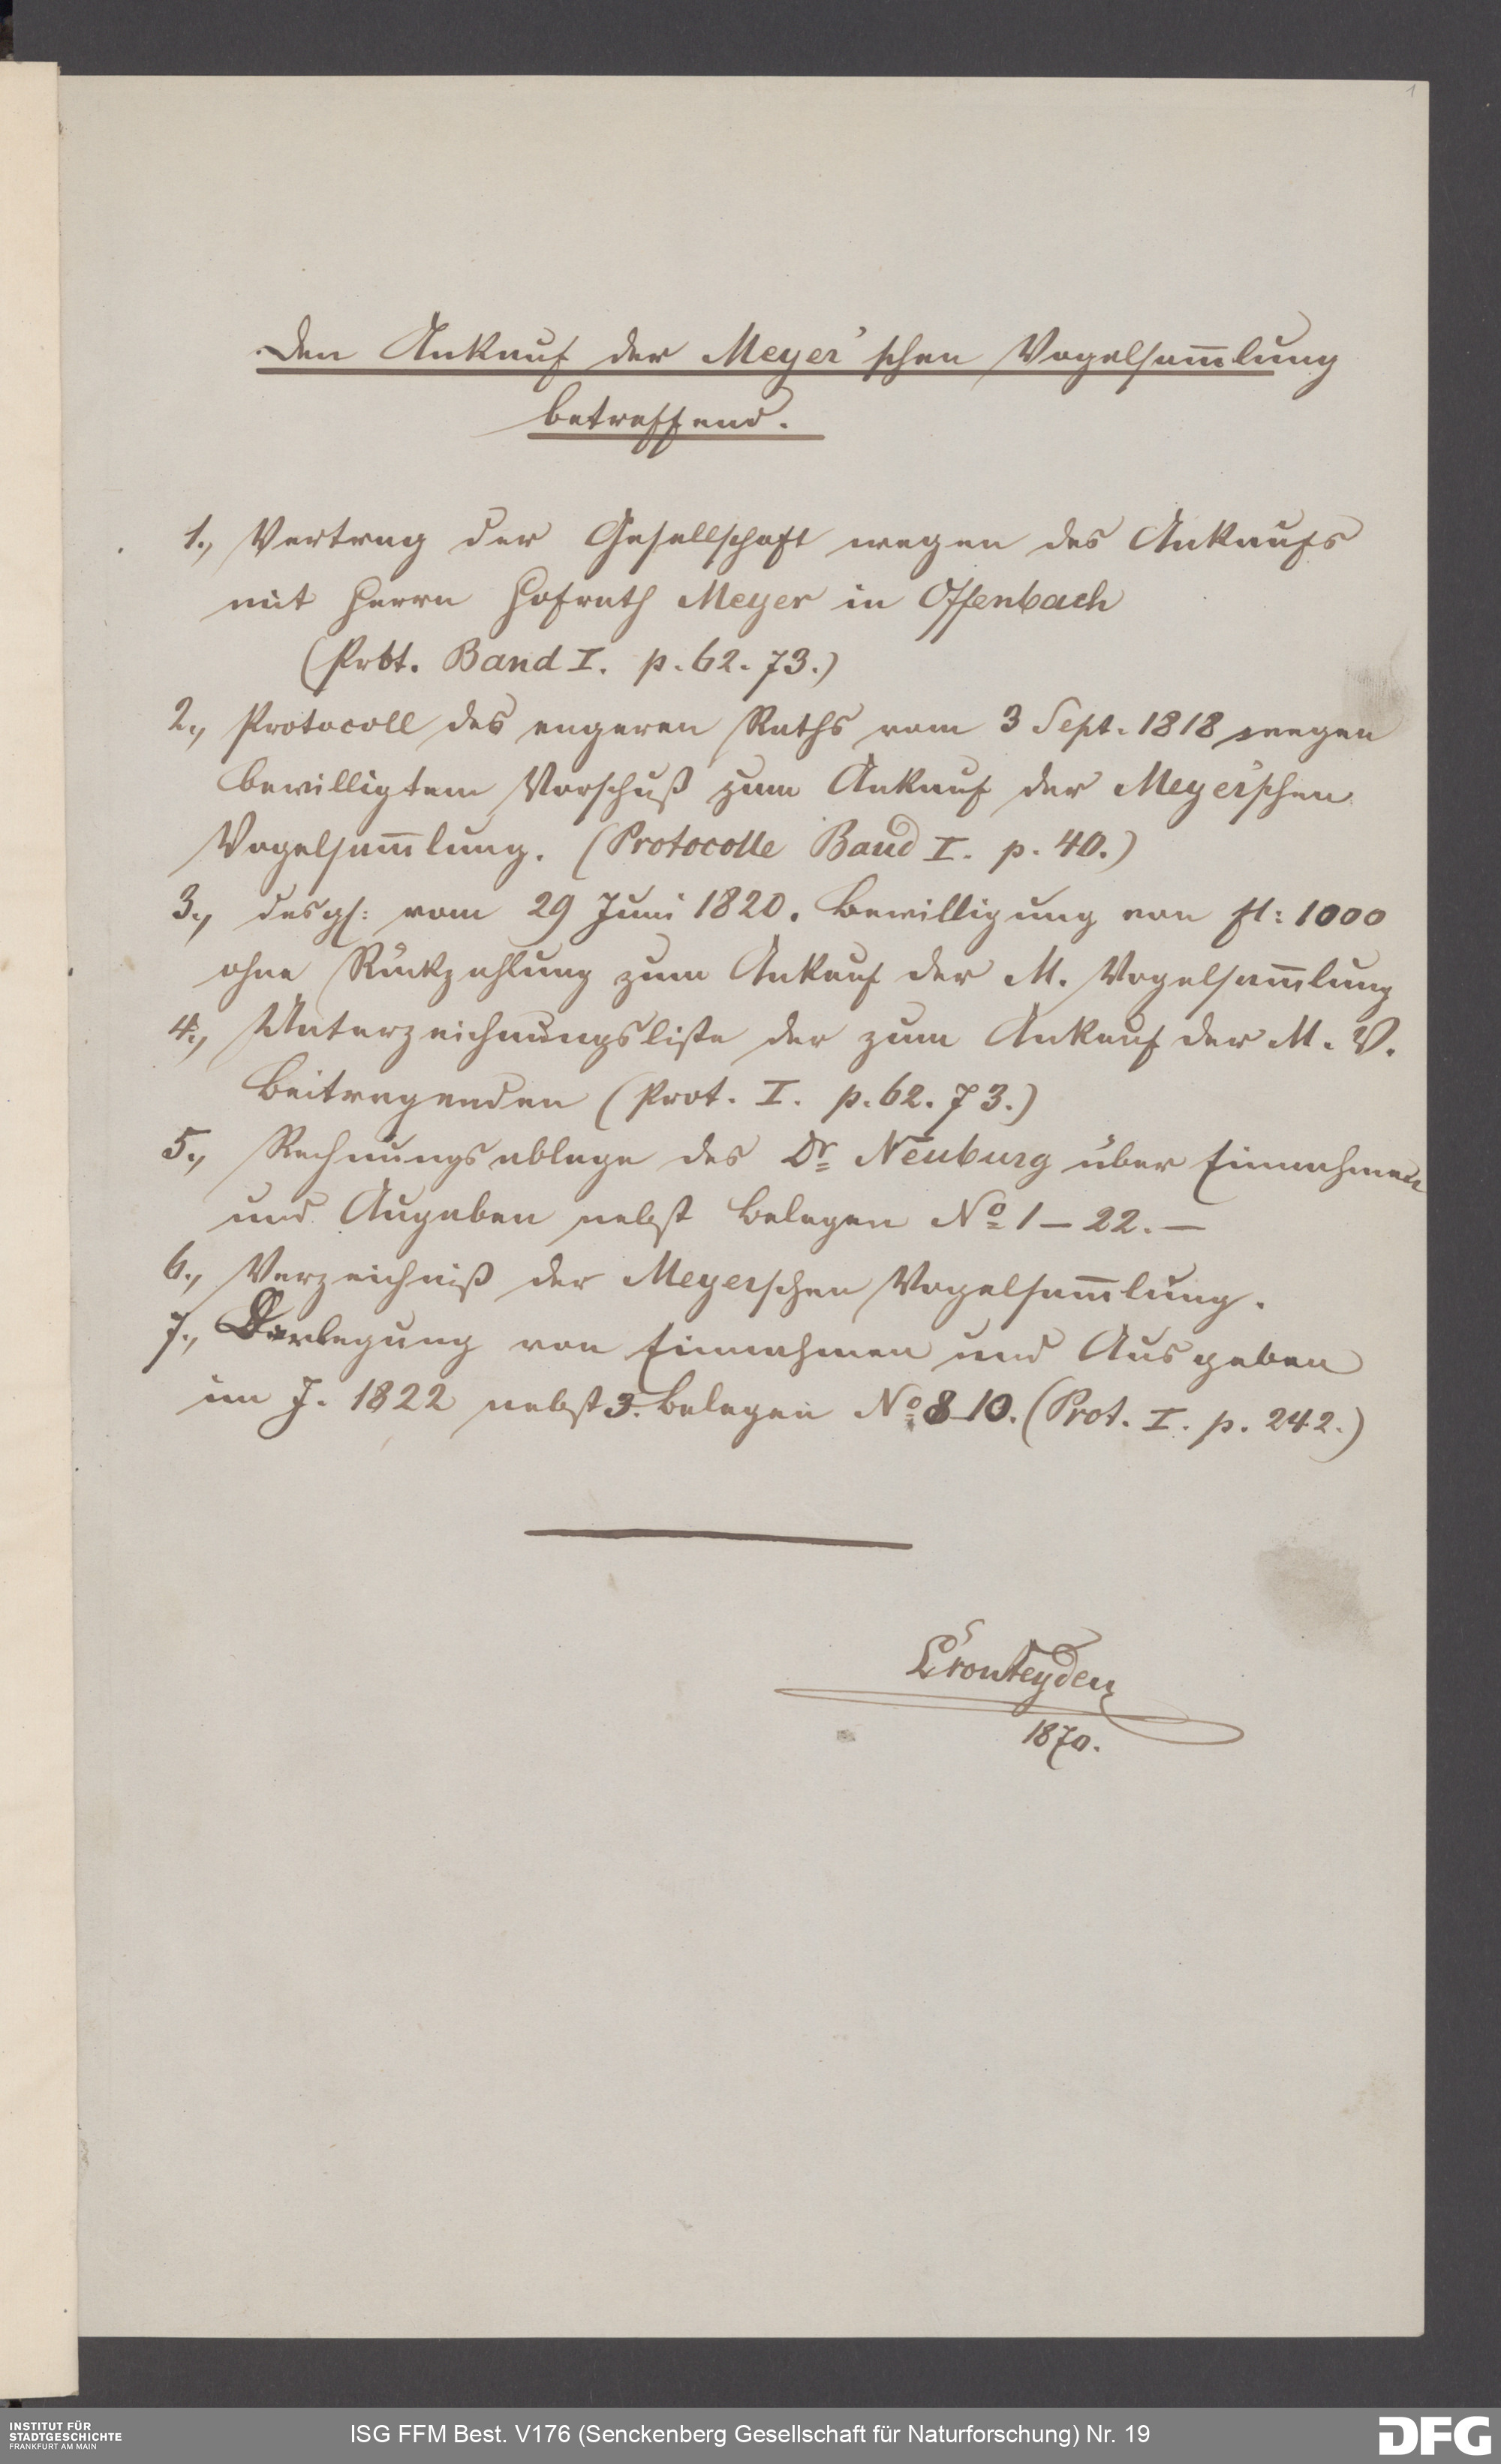 1
Den Ankauf der Meyer'schen Vogelsam̅lung
betreffend.
1., Vertrag der Gesellschaft wegen des Ankaufs
mit Herrn Hofrath Meyer in Offenbach
(Prot. Band I. p. 62. 73.)
2., Protocoll des engeren Raths vom 3 Sept. 1818 wegen
bewilligtem Vorschuß zum Ankauf der Meyer'schen
Vogelsam̅lung. (Protocolle Band I. p. 40.)
3., desgl: vom 29 Juni 1820. Bewilligung von fl: 1000
ohne Rückzahlung zum Ankauf der M. Vogelsam̅lung
4., Unterzeichnungsliste der zum Ankauf der M. V.
Beitragenden (Prot. I. p. 62. 73.)
5., Rechnungsablage des Dr Neuburg über Einnahmen
und Augaben nebst Belegen No 1 – 22. –
6., Verzeichniß der Meyerschen Vogelsam̅lung.
7., Darlegung von Einnahmen und Ausgaben
im J. 1822 nebst 3. Belegen No 8-10. (Prot. I. p. 242.)
1870.
INSTITUT FÜR
STADTGESCHICHTE
FRANKFURT AM MAIN
ISG FFM Best. V176 (Senckenberg Gesellschaft für Naturforschung) Nr. 19
DFG